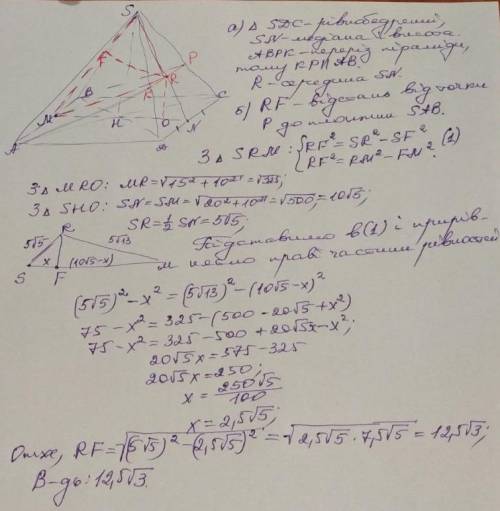 а) △ SDC - рівнобедрений,
SN - медіана і висота.
ABPK - переріз піраміди,
тому KP∥AB.
R - середина SN.
б) RF - відстань від точки
P до площини SAB.
З △ SRM: { RF² = SR² - SF²
RF² = RM² - FM². (1)
З △ MRO: MR = √15² + 10² = √325;
З △ SHO: SN = SM = √20² + 10² = √500 = 10√5;
SR = 1/2 SN = 5√5;
Підставимо в (1) і прирів-
няємо праві частини рівностей
(5√5)² - x² = (5√13)² - (10√5 - x)²
75 - x² = 325 - (500 - 20√5 + x²)
75 - x² = 325 - 500 + 20√5x - x²;
20√5x = 575 - 325
20√5x = 250;
x = 250√5/100
x = 2,5√5;
Отже, RF = √(5√5)² - (2,5√5)² = √2,5√5 · 7,5√5 = 12,5√3;
В-дь: 12,5√3.
S
F
P
R
K
B
M
H
C
O
N
A
R
5√5
5√13
x
(10√5-x)
S
F
M